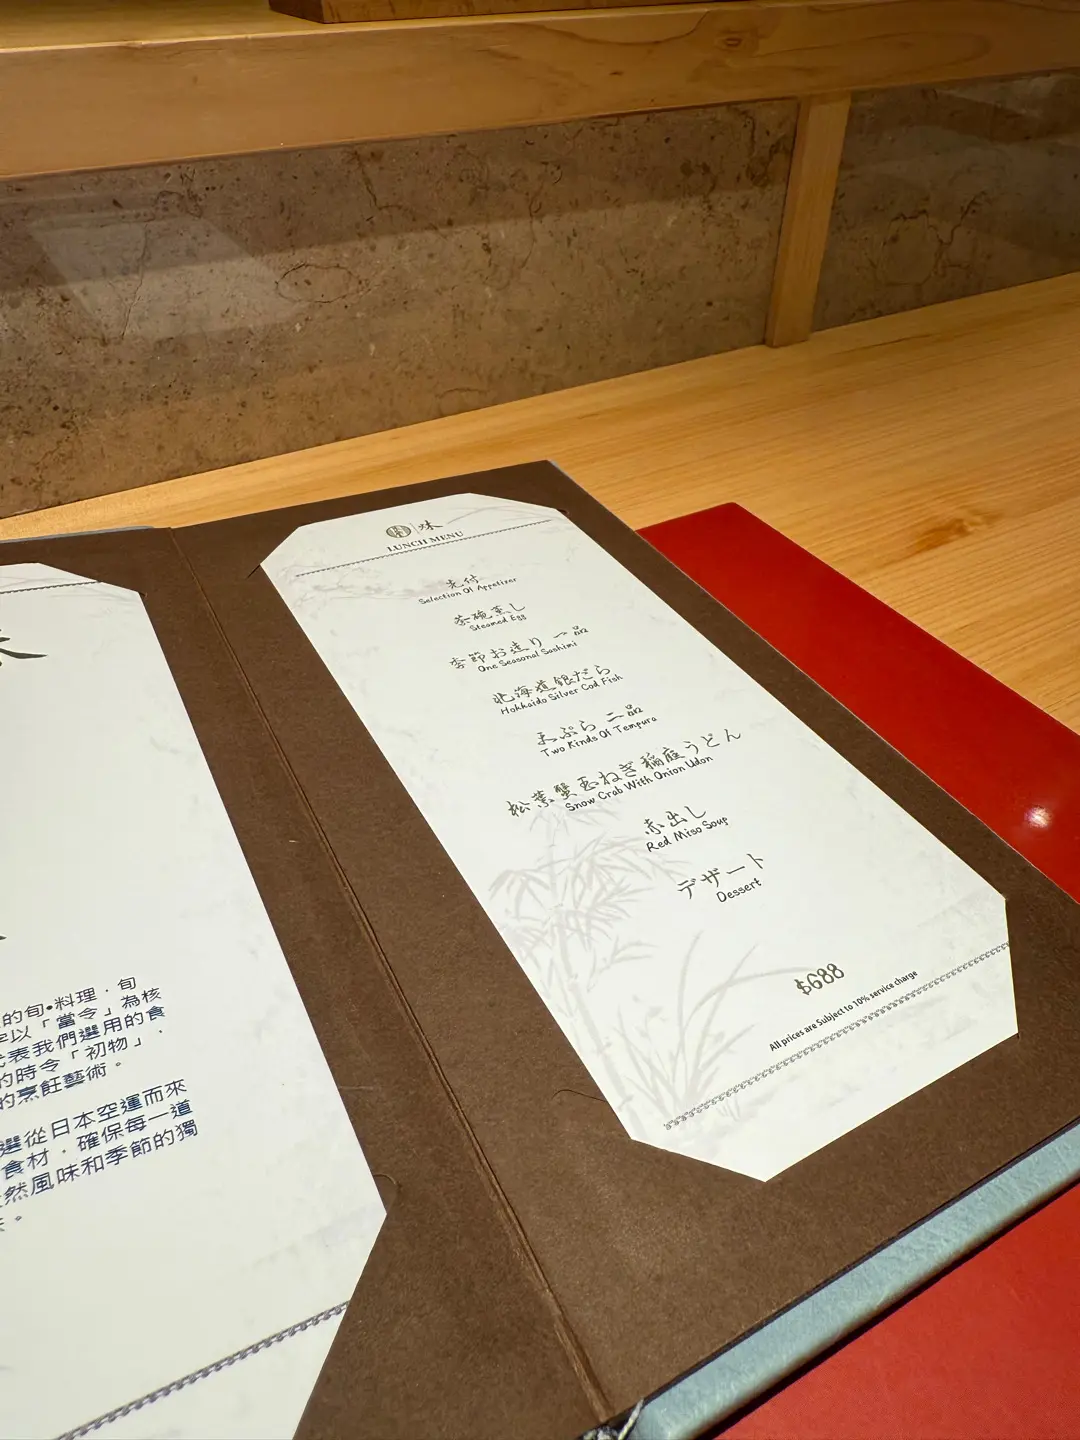 的旬•料理．旬
以「當令」為核
表我們選用的食
的時令「初物」．
的烹飪藝術。
選從日本空運而來
食材．確保每一道
然風味和季節的獨
。
味
LUNCH MENU
先付
Selection Of Appetizer
茶碗蒸し
Steamed Egg
季節お造り 一品
One Seasonal Sashimi
北海道銀だら
Hokkaido Silver Cod Fish
天ぷら 二品
Two Kinds Of Tempura
松葉蟹玉ねぎ稲庭うどん
Snow Crab With Onion Udon
赤出し
Red Miso Soup
デザート
Dessert
$688
All prices are Subject to 10% service charge